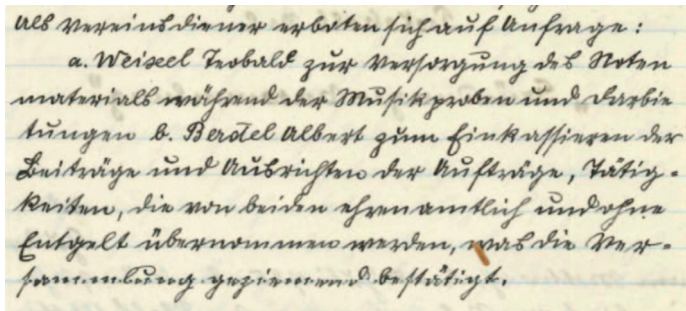 Als Vereinsdiener erboten sich auf Anfrage:
a. Weisel Teobald zur Versorgung des Noten
materials während der Musikproben und Darbie
tungen b. Berdel Albert zum Einkassieren der
Beiträge und Ausrichten der Aufträge, Tätig-
keiten, die von beiden ehrenamtlich und ohne
Entgelt übernommen werden, was die Ver-
sammlung geziemend bestätigt.